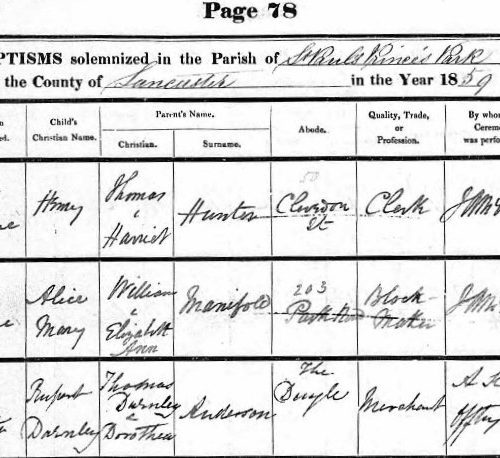 Page 78
PTISMS solemnized in the Parish of St Pauls Princes Park
the County of Lancaster in the Year 1859
Child's Christian Name.
Parent's Name.
Christian. Surname.
Abode.
Quality, Trade, or Profession.
By whom
Ceremo
was perfo
Henry
Thomas & Harriet
Hunter
Clevedon St
Clerk
Alice Mary
William & Elizabeth Ann
Manifold
203 Park Road
Block-Maker
Rupert Darnley
Thomas Darnley & Dorothea
Anderson
The Dingle
Merchant